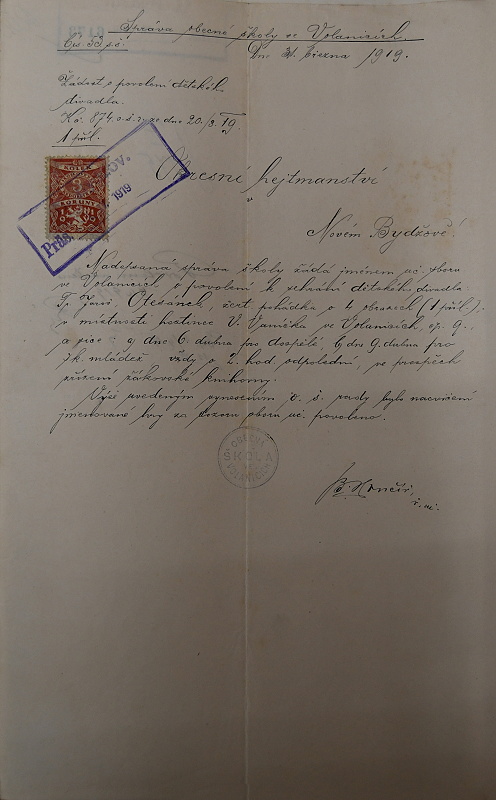 Správa obecné školy ve Volanicích.
Čís. 33 p.š. Dne 31. března 1919.
Žádost o povolení dětského
divadla.
K č. 874 o.š.r. ze dne 20./3. 19.
1 příl.
3
KORUNY
1919
Okresní hejtmanství
v
Novém Bydžově!
Nadepsaná správa školy žádá jménem uč. sboru
ve Volanicích o povolení k sehrání dětského divadla:
Otesánek, čert. pohádka o 4 obrazech (1 příl.),
v místnosti hostince V. Vaníčka ve Volanicích, čp. 9.,
a sice: a) dne 6. dubna pro dospělé, b) dne 9. dubna pro
šk. mládež vždy o 2. hod. odpolední, ve prospěch
zřízení žákovské knihovny.
Výše uvedeným vynesením o. š. rady bylo nacvičení
jmenované hry za dozoru sboru uč. povoleno.
OBECNÁ
ŠKOLA
VOLANICÍCH
ř. uč.